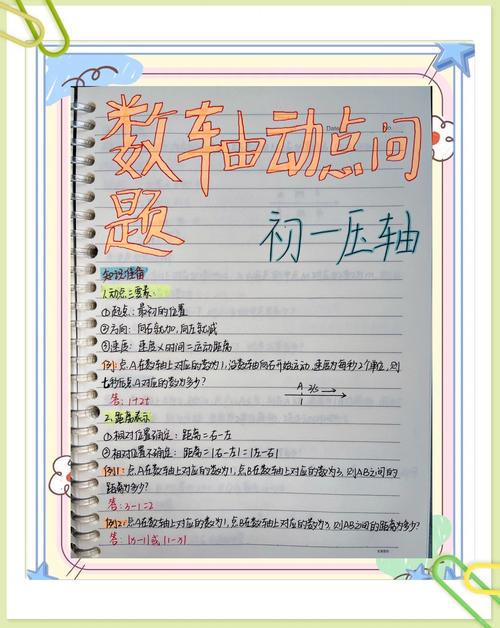 数轴动点问
题
初一压轴
知识准备
1.动点三要素:
①起点:最初的位置
②方向:向右就加,向左就减
③速度:速度×时间=运动距离
例:点A在数轴上对应的数为1,沿数轴向右开始运动,速度为每秒2个单位,则
t秒后点A对应的数为多少?
A
答:1+2t
2.距离表示
①相对位置确定:距离=右-左
②相对位置不确定:距离=|右-左|=|左-右|
例1:点A在数轴上对应的数为1,点B在数轴上对应的数为3,则AB之间的
距离为多少?
答:3-1=2
例2:点A在数轴上对应的数为1,点B在数轴上对应的数为?,则AB之间的距离为多少?